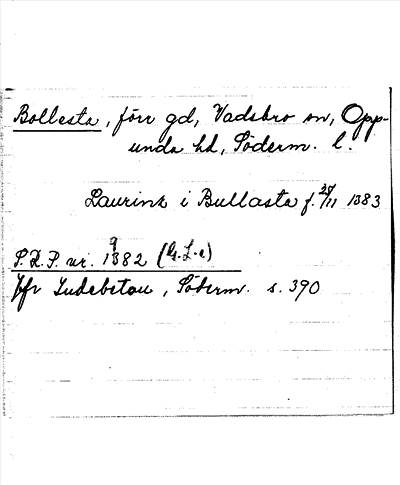 Bollesta, förr gd, Vadsbro sn, Opp-
unda hd, Söderm. l.
Laurinz i Bullasta f. 25/11 1383
S.R.P. nr. 1982 (G.L.e)
Jfr Ludebetau, Söderm. s. 390